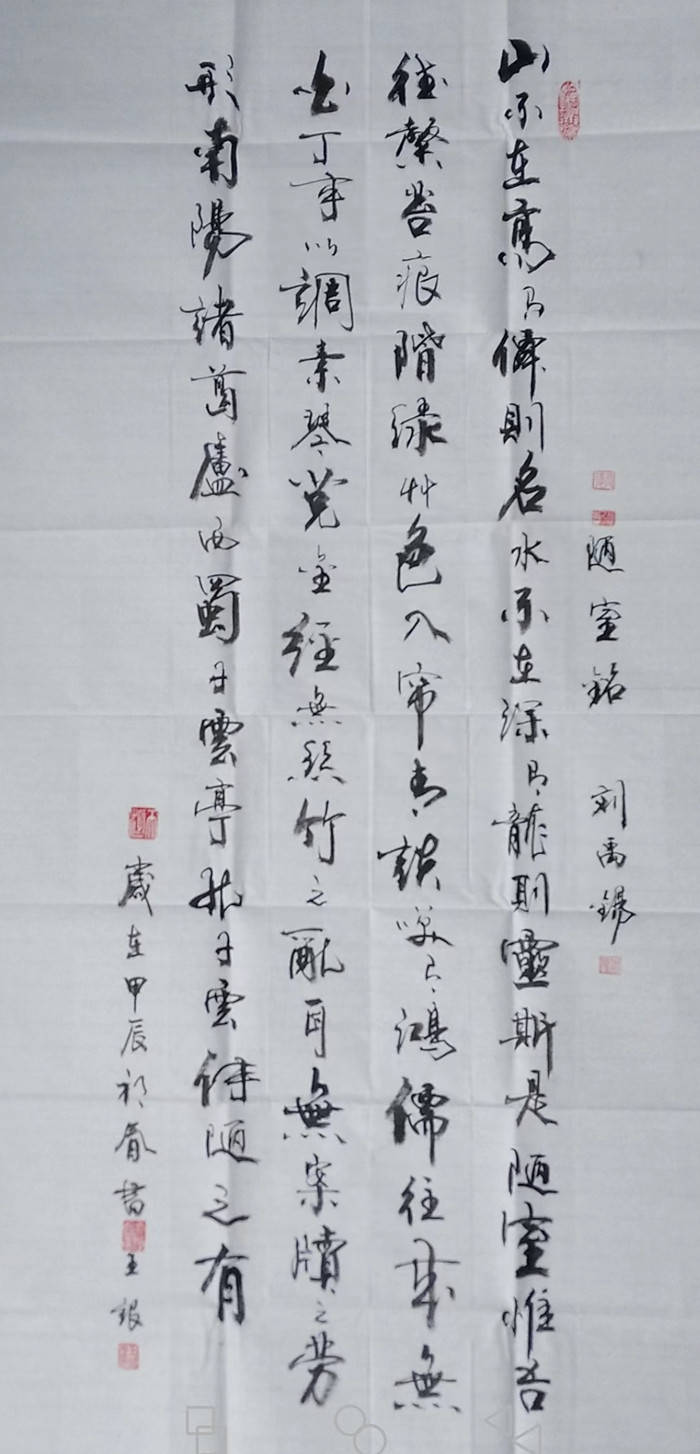 陋室銘 刘禹錫
山不在高有僊則名水不在深有龍則靈斯是陋室惟吾
德馨苔痕階緑艸色入帘青談笑有鴻儒往来無
白丁可以調素琴金經無絲竹之亂耳無案牘之勞
形南陽諸葛廬西蜀子雲亭孔子雲何陋之有
歲在甲辰初春書王銀